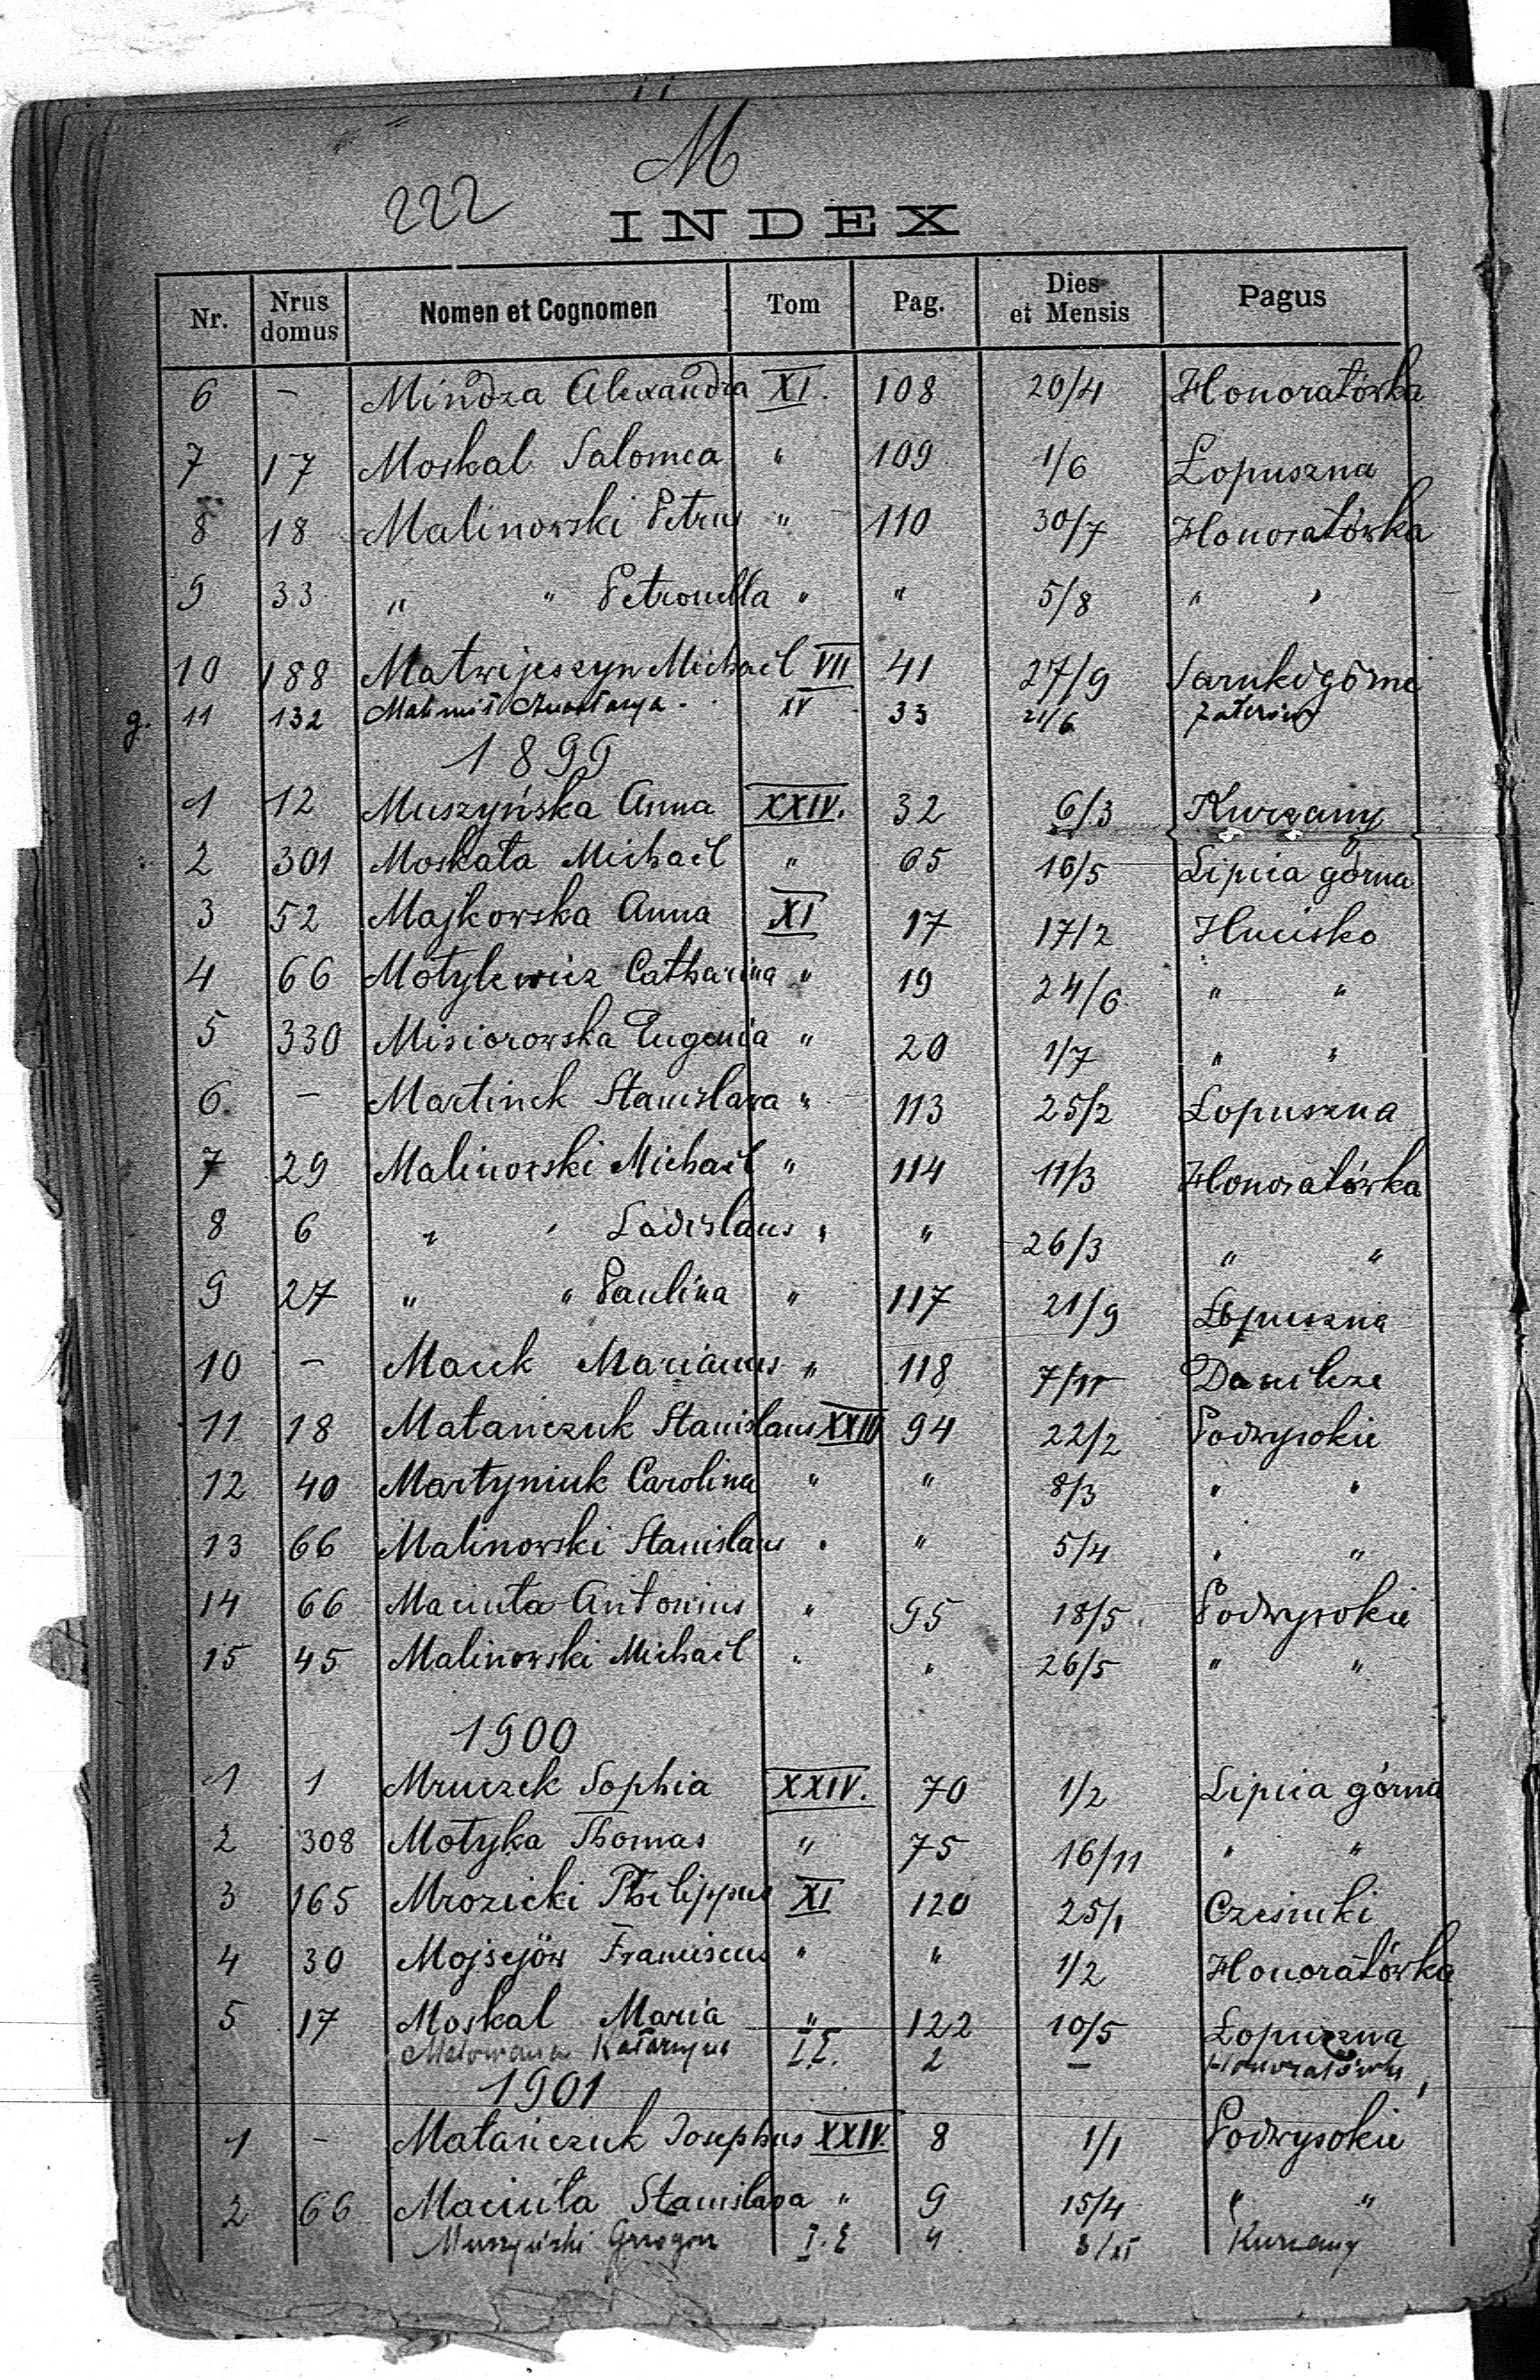 M
222
INDEX
Nr. Nrus domus Nomen et Cognomen Tom Pag. Dies et Mensis Pagus
6 – Mindza Alexandra XI. 108 20/4 Honoratówka
7 17 Moskal Salomea " 109 1/6 Łopuszna
8 18 Malinowski Petrus " 110 30/7 Honoratówka
9 33 " " Petronella " " 5/8 " "
10 188 Matwijeszyn Michaël VII 41 27/9 Sarnki górne
g. 11 132 XV 33 21/6
1899
1 12 Muszyńska Anna XXIV. 32 6/3 Kurzany
2 301 Moskała Michaël " 65 16/5 Lipica górna
3 52 Majkowska Anna XI 17 17/2 Hucisko
4 66 Motylewicz Catharina " 19 24/6 " "
5 330 Misiorowska Eugenia " 20 1/7 " "
6. – Martinek Stanislava " 113 25/2 Łopuszna
7 29 Malinowski Michaël " 114 11/3 Honoratówka
8 6 " " Ladislaus " " 26/3 " "
9 27 " " Paulina " 117 21/9 Łopuszna
10 – Macek Marianus " 118 7/11 Danilcze
11 18 Matańczuk Stanislaus XXIV 94 22/2 Podwysokie
12 40 Martyniuk Carolina " " 8/3 " "
13 66 Malinowski Stanislaus " " 5/4 " "
14 66 Maciuta Antonius " 95 18/5 Podwysokie
15 45 Malinowski Michaël " " 26/5 " "
1900
1 1 Mruczek Sophia XXIV. 70 1/2 Lipica górna
2 308 Motyka Thomas " 75 16/11 " "
3 165 Mrozicki Philippus XI 120 25/1 Czesniki
4 30 Mojsejów Franciscus " " 1/2 Honoratówka
5 17 Moskal Maria " 122 10/5 Łopuszna
Katarzyna 2 – Honoratówka
1901
1 – Matańczuk Josephus XXIV. 8 1/1 Podwysokie
2 66 Maciuta Stanislava " 9 15/4 " "
Muszyński Grzegorz I. E 4 3/XI Kurzany